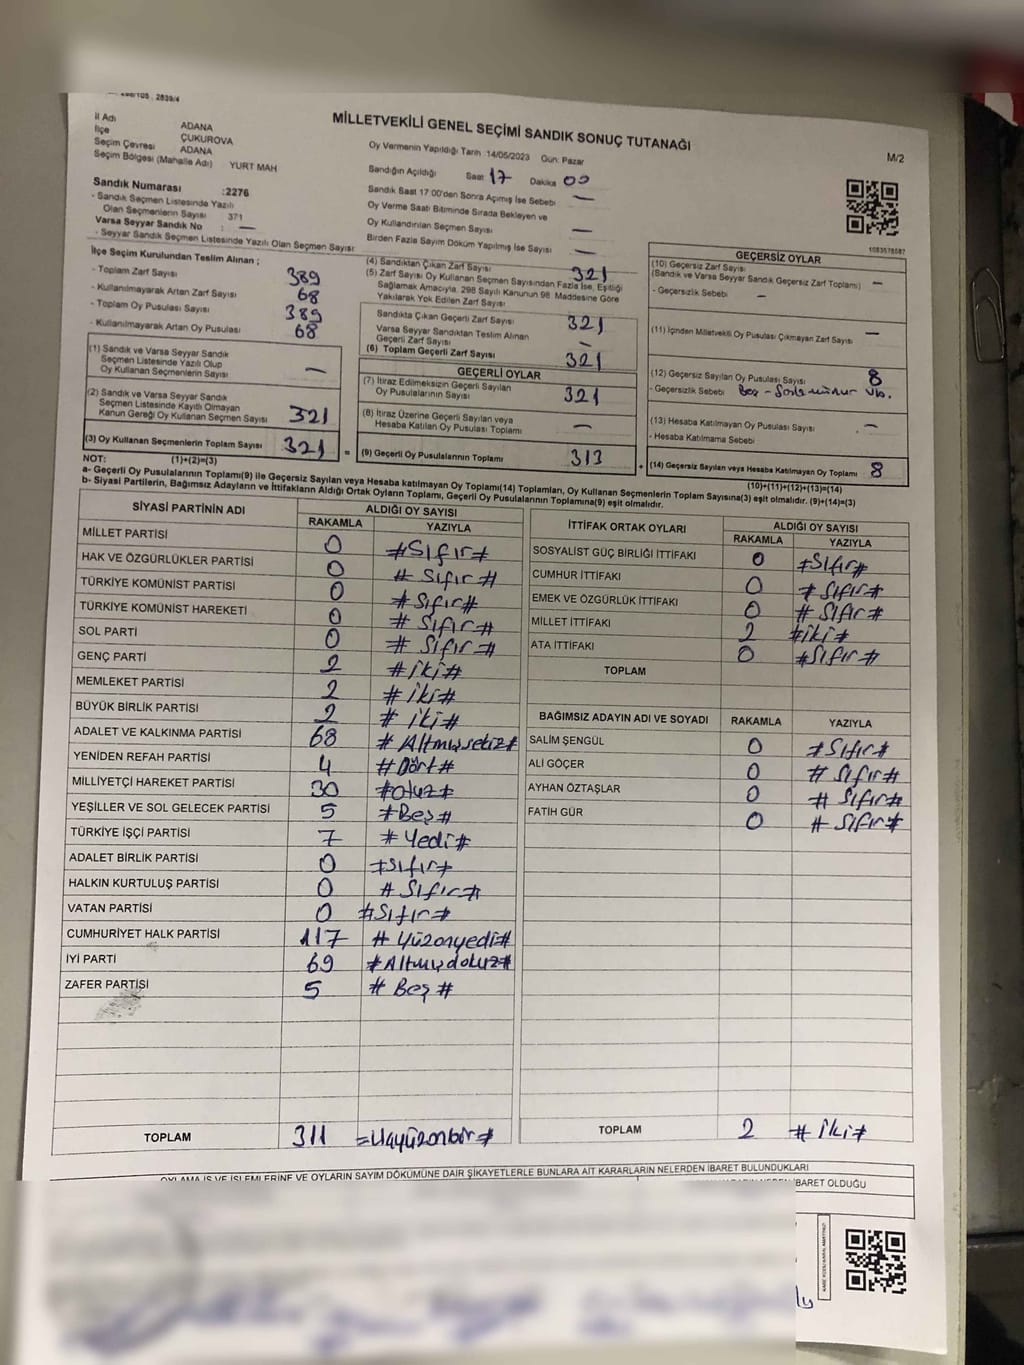 MİLLETVEKİLİ GENEL SEÇİMİ SANDIK SONUÇ TUTANAĞI
M/2
İl Adı ADANA
İlçe ÇUKUROVA
Seçim Çevresi ADANA
Seçim Bölgesi (Mahalle Adı) YURT MAH
Sandık Numarası :2276
- Sandık Seçmen Listesinde Yazılı
Olan Seçmenlerin Sayısı 371
Varsa Seyyar Sandık No : —
- Seyyar Sandık Seçmen Listesinde Yazılı Olan Seçmen Sayısı
Oy Vermenin Yapıldığı Tarih :14/05/2023 Gün: Pazar
Sandığın Açıldığı Saat 17 Dakika 00
Sandık Saat 17:00'den Sonra Açılmış İse Sebebi —
Oy Verme Saati Bitiminde Sırada Bekleyen ve
Oy Kullandırılan Seçmen Sayısı —
Birden Fazla Sayım Döküm Yapılmış İse Sayısı —
1083578587
İlçe Seçim Kurulundan Teslim Alınan ;
- Toplam Zarf Sayısı 389
- Kullanılmayarak Artan Zarf Sayısı 68
- Toplam Oy Pusulası Sayısı 389
- Kullanılmayarak Artan Oy Pusulası 68
(1) Sandık ve Varsa Seyyar Sandık
Seçmen Listesinde Yazılı Olup
Oy Kullanan Seçmenlerin Sayısı —
(2) Sandık ve Varsa Seyyar Sandık
Seçmen Listesinde Kayıtlı Olmayan
Kanun Gereği Oy Kullanan Seçmen Sayısı 321
(3) Oy Kullanan Seçmenlerin Toplam Sayısı 321 =
(1)+(2)=(3)
(4) Sandıktan Çıkan Zarf Sayısı 321
(5) Zarf Sayısı Oy Kullanan Seçmen Sayısından Fazla İse, Eşitliği
Sağlamak Amacıyla, 298 Sayılı Kanunun 98. Maddesine Göre
Yakılarak Yok Edilen Zarf Sayısı
Sandıkta Çıkan Geçerli Zarf Sayısı 321
Varsa Seyyar Sandıktan Teslim Alınan
Geçerli Zarf Sayısı —
(6) Toplam Geçerli Zarf Sayısı 321
GEÇERLİ OYLAR
(7) İtiraz Edilmeksizin Geçerli Sayılan
Oy Pusulasının Sayısı 321
(8) İtiraz Üzerine Geçerli Sayılan veya
Hesaba Katılan Oy Pusulası Toplamı —
(9) Geçerli Oy Pusulalarının Toplamı 313 +
GEÇERSİZ OYLAR
(10) Geçersiz Zarf Sayısı
(Sandık ve Varsa Seyyar Sandık Geçersiz Zarf Toplamı) —
- Geçersizlik Sebebi —
(11) İçinden Milletvekili Oy Pusulası Çıkmayan Zarf Sayısı —
(12) Geçersiz Sayılan Oy Pusulası Sayısı 8
- Geçersizlik Sebebi
(13) Hesaba Katılmayan Oy Pusulası Sayısı —
- Hesaba Katılmama Sebebi
(14) Geçersiz Sayılan veya Hesaba Katılmayan Oy Toplamı 8
(10)+(11)+(12)+(13)=(14)
NOT:
a- Geçerli Oy Pusulalarının Toplamı(9) ile Geçersiz Sayılan veya Hesaba katılmayan Oy Toplamı(14) Toplamları, Oy Kullanan Seçmenlerin Toplam Sayısına(3) eşit olmalıdır. (9)+(14)=(3)
b- Siyasi Partilerin, Bağımsız Adayların ve İttifakların Aldığı Ortak Oyların Toplamı, Geçerli Oy Pusulalarının Toplamına(9) eşit olmalıdır.
SİYASİ PARTİNİN ADI ALDIĞI OY SAYISI
RAKAMLA YAZIYLA
MİLLET PARTİSİ 0 #Sıfır#
HAK VE ÖZGÜRLÜKLER PARTİSİ 0 #Sıfır#
TÜRKİYE KOMÜNİST PARTİSİ 0 #Sıfır#
TÜRKİYE KOMÜNİST HAREKETİ 0 #Sıfır#
SOL PARTİ 0 #Sıfır#
GENÇ PARTİ 2 #iki#
MEMLEKET PARTİSİ 2 #iki#
BÜYÜK BİRLİK PARTİSİ 2 #iki#
ADALET VE KALKINMA PARTİSİ 68 #Altmışsekiz#
YENİDEN REFAH PARTİSİ 4 #Dört#
MİLLİYETÇİ HAREKET PARTİSİ 30 #otuz#
YEŞİLLER VE SOL GELECEK PARTİSİ 5 #Beş#
TÜRKİYE İŞÇİ PARTİSİ 7 #Yedi#
ADALET BİRLİK PARTİSİ 0 #Sıfır#
HALKIN KURTULUŞ PARTİSİ 0 #Sıfır#
VATAN PARTİSİ 0 #Sıfır#
CUMHURİYET HALK PARTİSİ 117 #Yüzonyedi#
İYİ PARTİ 69 #Altmışdokuz#
ZAFER PARTİSİ 5 #Beş#
TOPLAM 311 =Üçyüzonbir#
İTTİFAK ORTAK OYLARI ALDIĞI OY SAYISI
RAKAMLA YAZIYLA
SOSYALİST GÜÇ BİRLİĞİ İTTİFAKI 0 #Sıfır#
CUMHUR İTTİFAKI 0 #Sıfır#
EMEK VE ÖZGÜRLÜK İTTİFAKI 0 #Sıfır#
MİLLET İTTİFAKI 2 #iki#
ATA İTTİFAKI 0 #Sıfır#
TOPLAM
BAĞIMSIZ ADAYIN ADI VE SOYADI RAKAMLA YAZIYLA
SALİM ŞENGÜL 0 #Sıfır#
ALİ GÖÇER 0 #Sıfır#
AYHAN ÖZTAŞLAR 0 #Sıfır#
FATİH GÜR 0 #Sıfır#
TOPLAM 2 #iki#
OYLAMA İŞ VE İŞLEMLERİNE VE OYLARIN SAYIM DÖKÜMÜNE DAİR ŞİKAYETLERLE BUNLARA AİT KARARLARIN NELERDEN İBARET BULUNDUKLARI
İBARET OLDUĞU